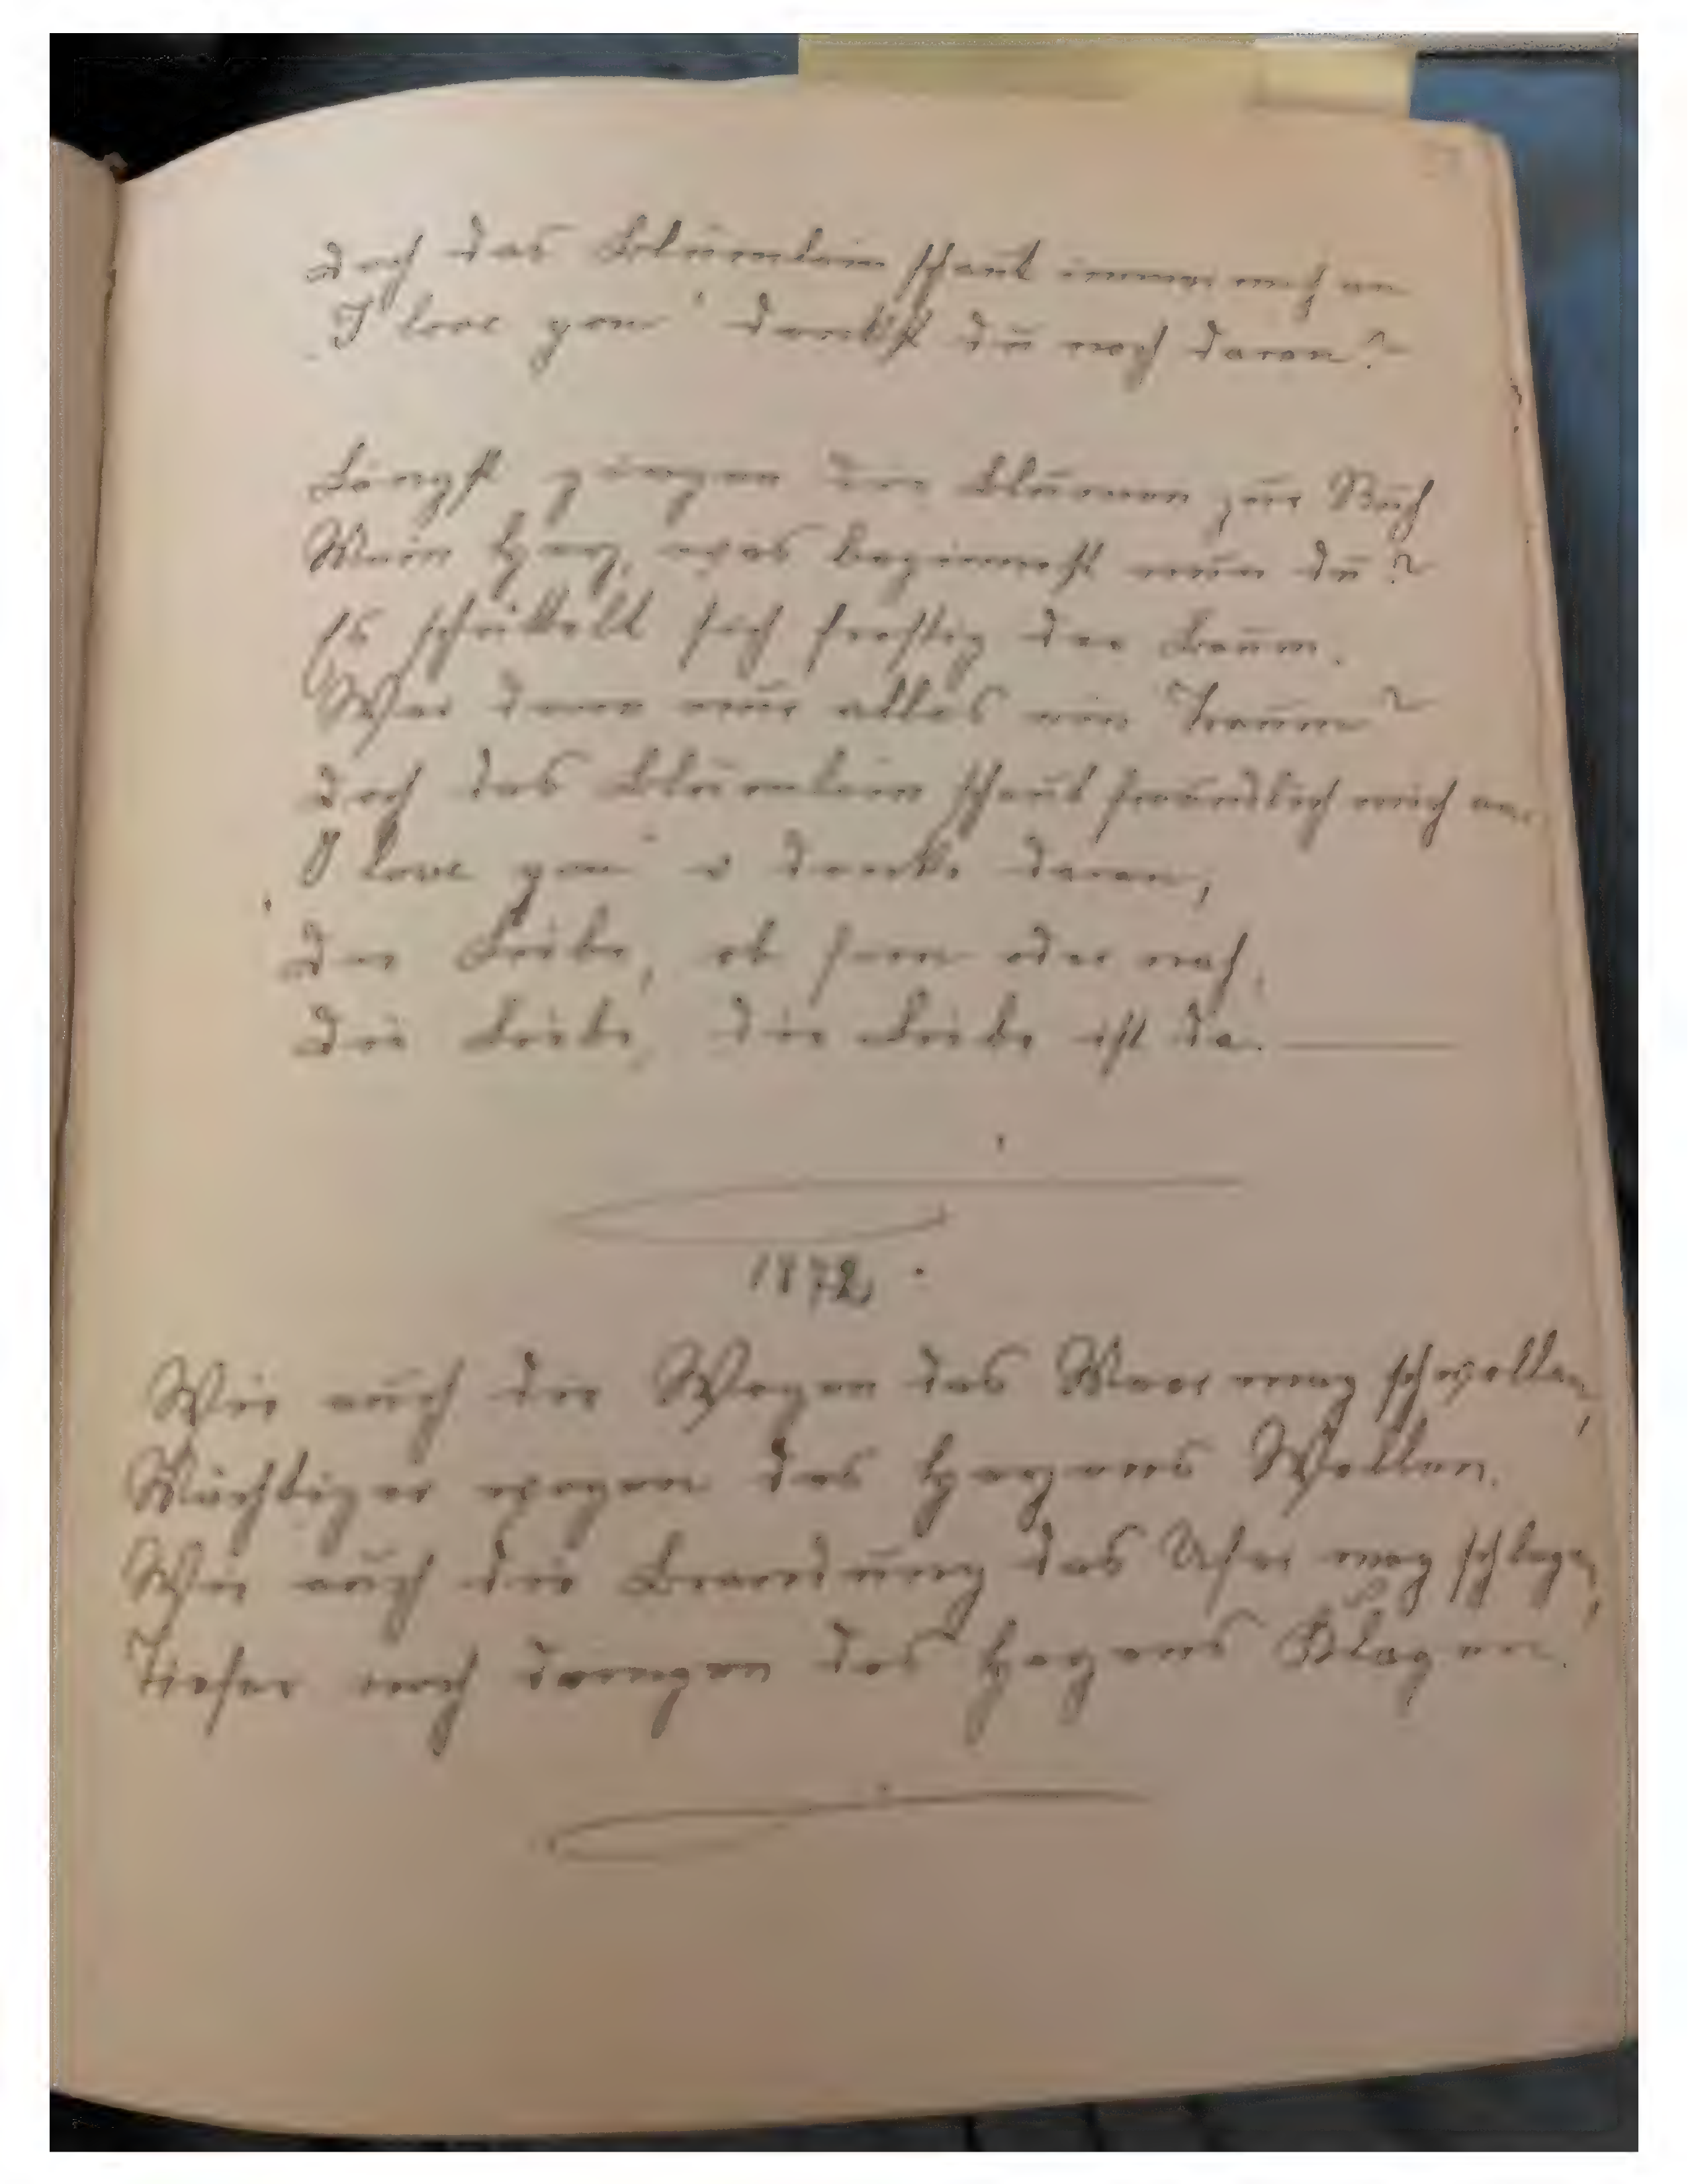 Doch das Blümlein schaut immer mich an
„I love you" denkst du noch daran?
Längst gingen die Blumen zur Ruh
Mein Herz, was beginnest nun du?
Es schüttelt sich frostig der Baum.
War denn nur alles ein Traum?
Doch das Blümlein schaut freundlich mich an.
I love you" o denke daran,
Die Liebe, ob fern oder nah,
Die Liebe, die Liebe ist da.
1872.
Wie auch die Wogen das Meer mag schwellen,
Mächtiger wogen des Herzens Wellen.
Wie auch die Brandung das Ufer mag schlagen,
Tiefer noch drängen des Herzens Klagen.